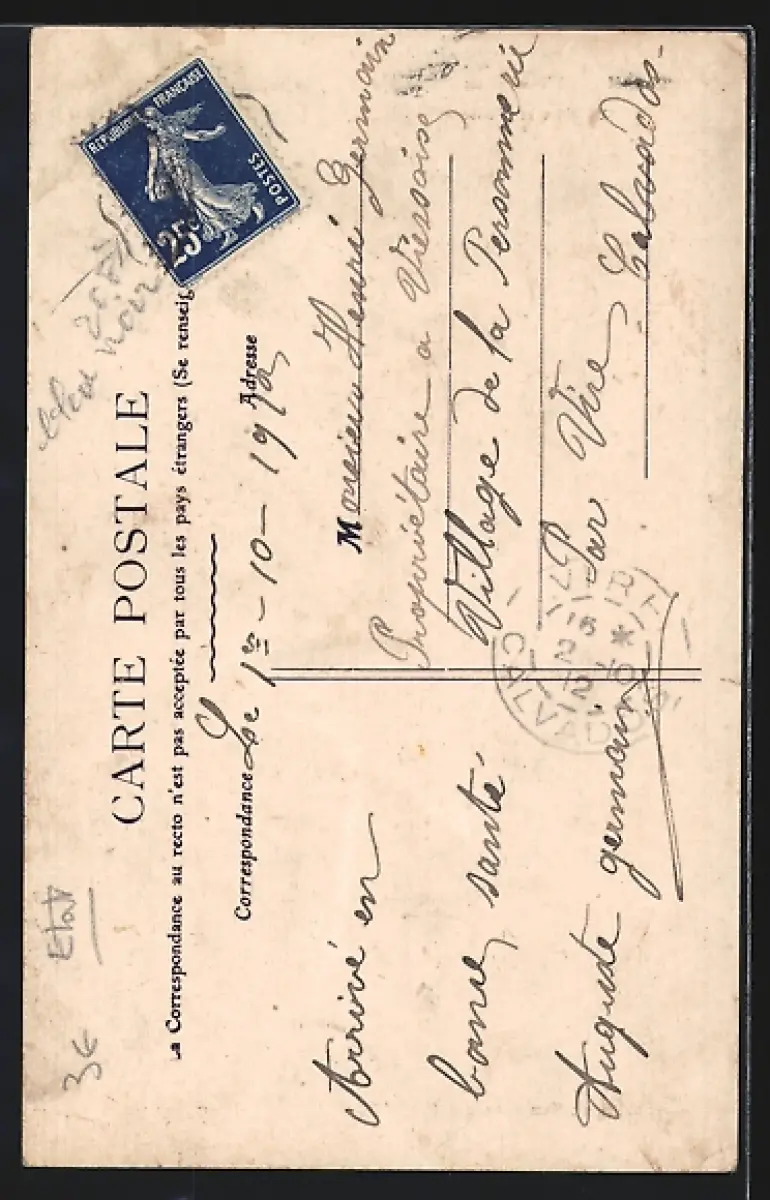 RÉPUBLIQUE FRANÇAISE
POSTES
25c
noir
Etat
3€
CARTE POSTALE
La Correspondance au recto n'est pas acceptée par tous les pays étrangers (Se renseig
Correspondance
Adresse
Le 1er - 10 - 1912
Arrivé en
bonne santé
Auguste germain
Monsieur Henri Germain
Propriétaire a Viessoix
Village de la
Par Vire
Calvados
VIRE
15
2 * 10
12
CALVADOS